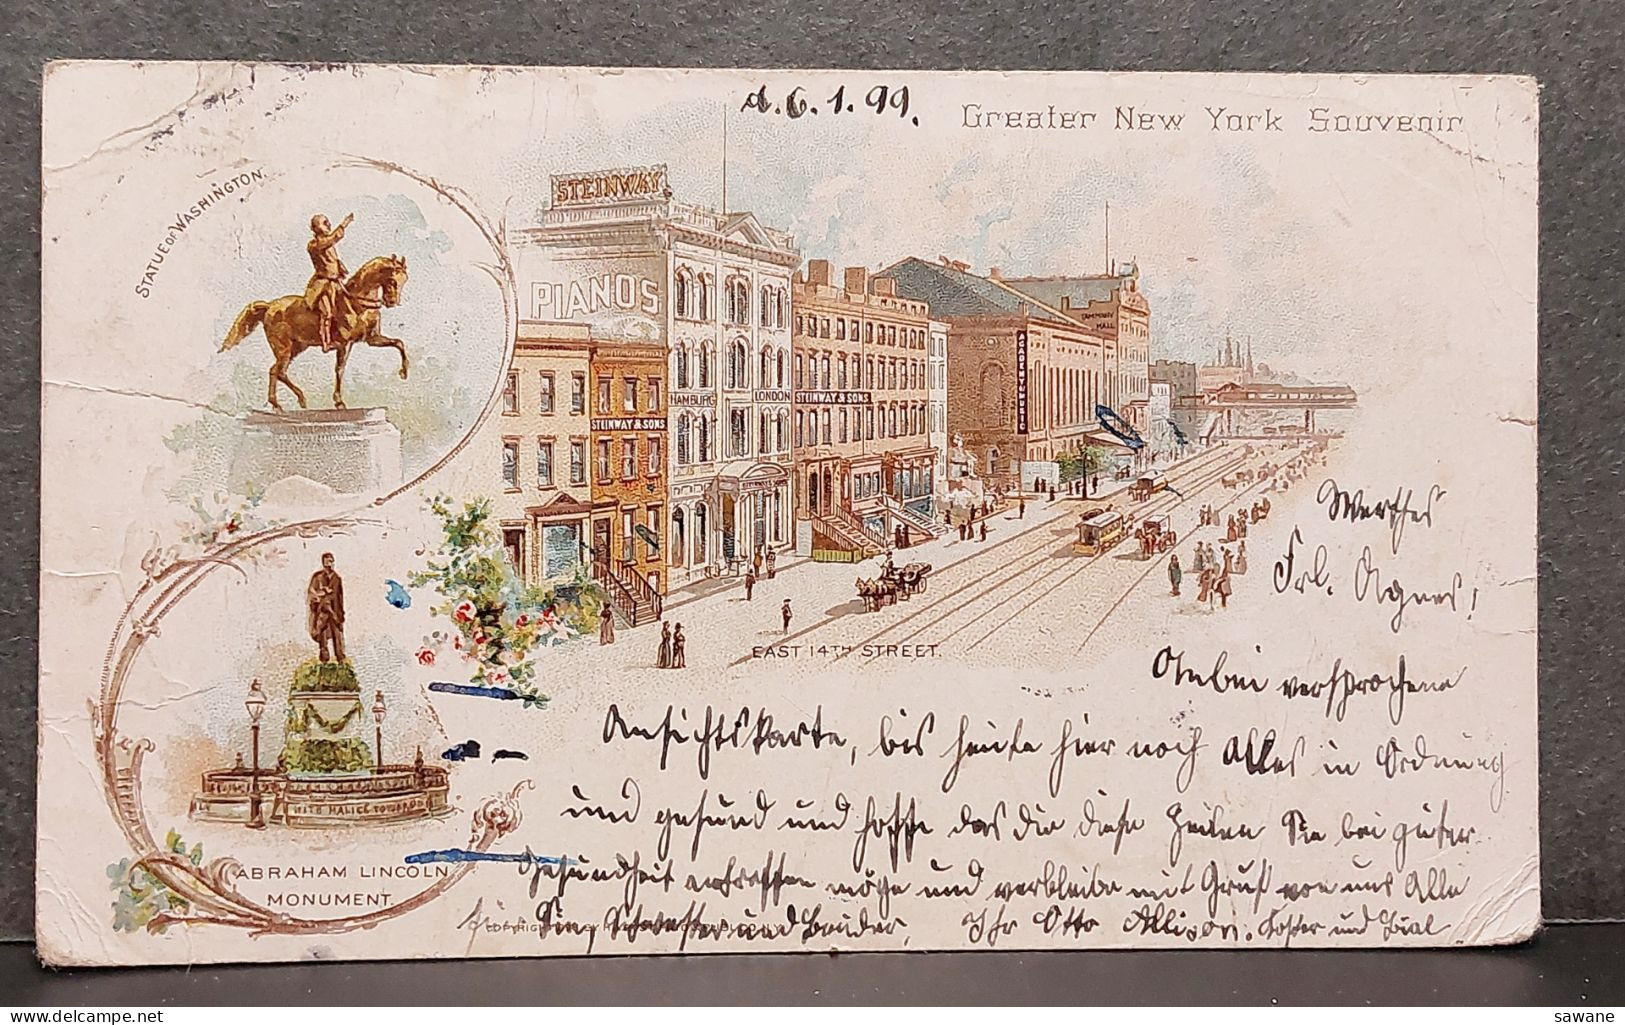 d. 6. 1. 99.
Greater New York Souvenir
STATUE OF WASHINGTON.
STEINWAY
PIANOS
TAMMANY
HALL
ACADEMY MUSIC
HAMBURG
LONDON
STEINWAY & SONS
STEINWAY & SONS
EAST 14TH STREET.
Werthes
Frl. Agnes!
Anbei versprochene
Ansichtskarte, bis heute hier noch Alles in Ordnung
und gesund und hoffe das die diese Zeilen Sie bei guter
Gesundheit antreffen möge und verbleibe mit Gruß von uns Alle
für Sie, Schwester und Bruder, Ihr Otto Allison.
WITH MALICE TOWARD
ABRAHAM LINCOLN
MONUMENT.
COPYRIGHT
sawane